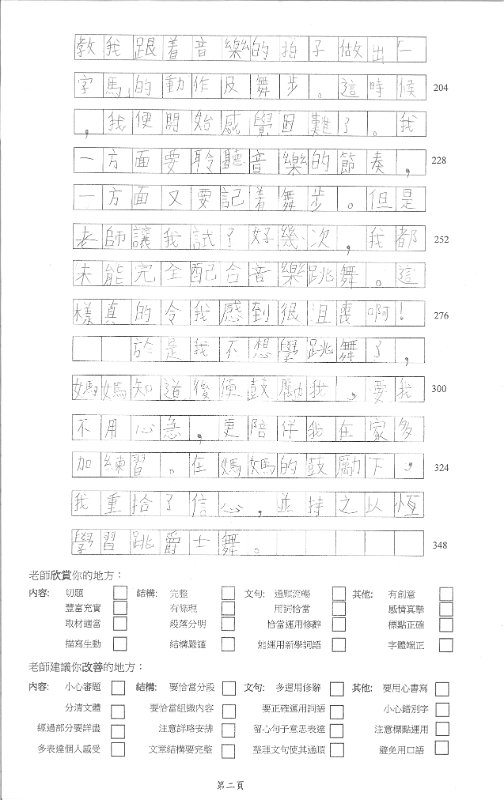 教我跟着音樂的拍子做出「一
字馬」的動作及舞步。這時候 204
，我便開始感覺困難了。我
一方面要聆聽音樂的節奏， 228
一方面又要記着舞步。但是
老師讓我試了好幾次，我都 252
未能完全配合音樂跳舞。這
樣真的令我感到很沮喪啊！ 276
於是我不想學跳舞了，
媽媽知道後便鼓勵我，要我 300
不用心急，更陪伴我在家多
加練習。在媽媽的鼓勵下， 324
我重拾了信心，並持之以恆
學習跳爵士舞。 348
老師欣賞你的地方：
內容： 切題 結構： 完整 文句： 通順流暢 其他： 有創意
豐富充實 有條理 用詞恰當 感情真摯
取材適當 段落分明 恰當運用修辭 標點正確
描寫生動 結構嚴謹 能運用新學詞語 字體端正
老師建議你改善的地方：
內容： 小心審題 結構： 要恰當分段 文句： 多運用修辭 其他： 要用心書寫
分清文體 要恰當組織內容 要正確運用詞語 小心錯別字
經過部分要詳盡 注意詳略安排 留心句子意思表達 注意標點運用
多表達個人感受 文章結構要完整 整理文句使其通順 避免用口語
第二頁